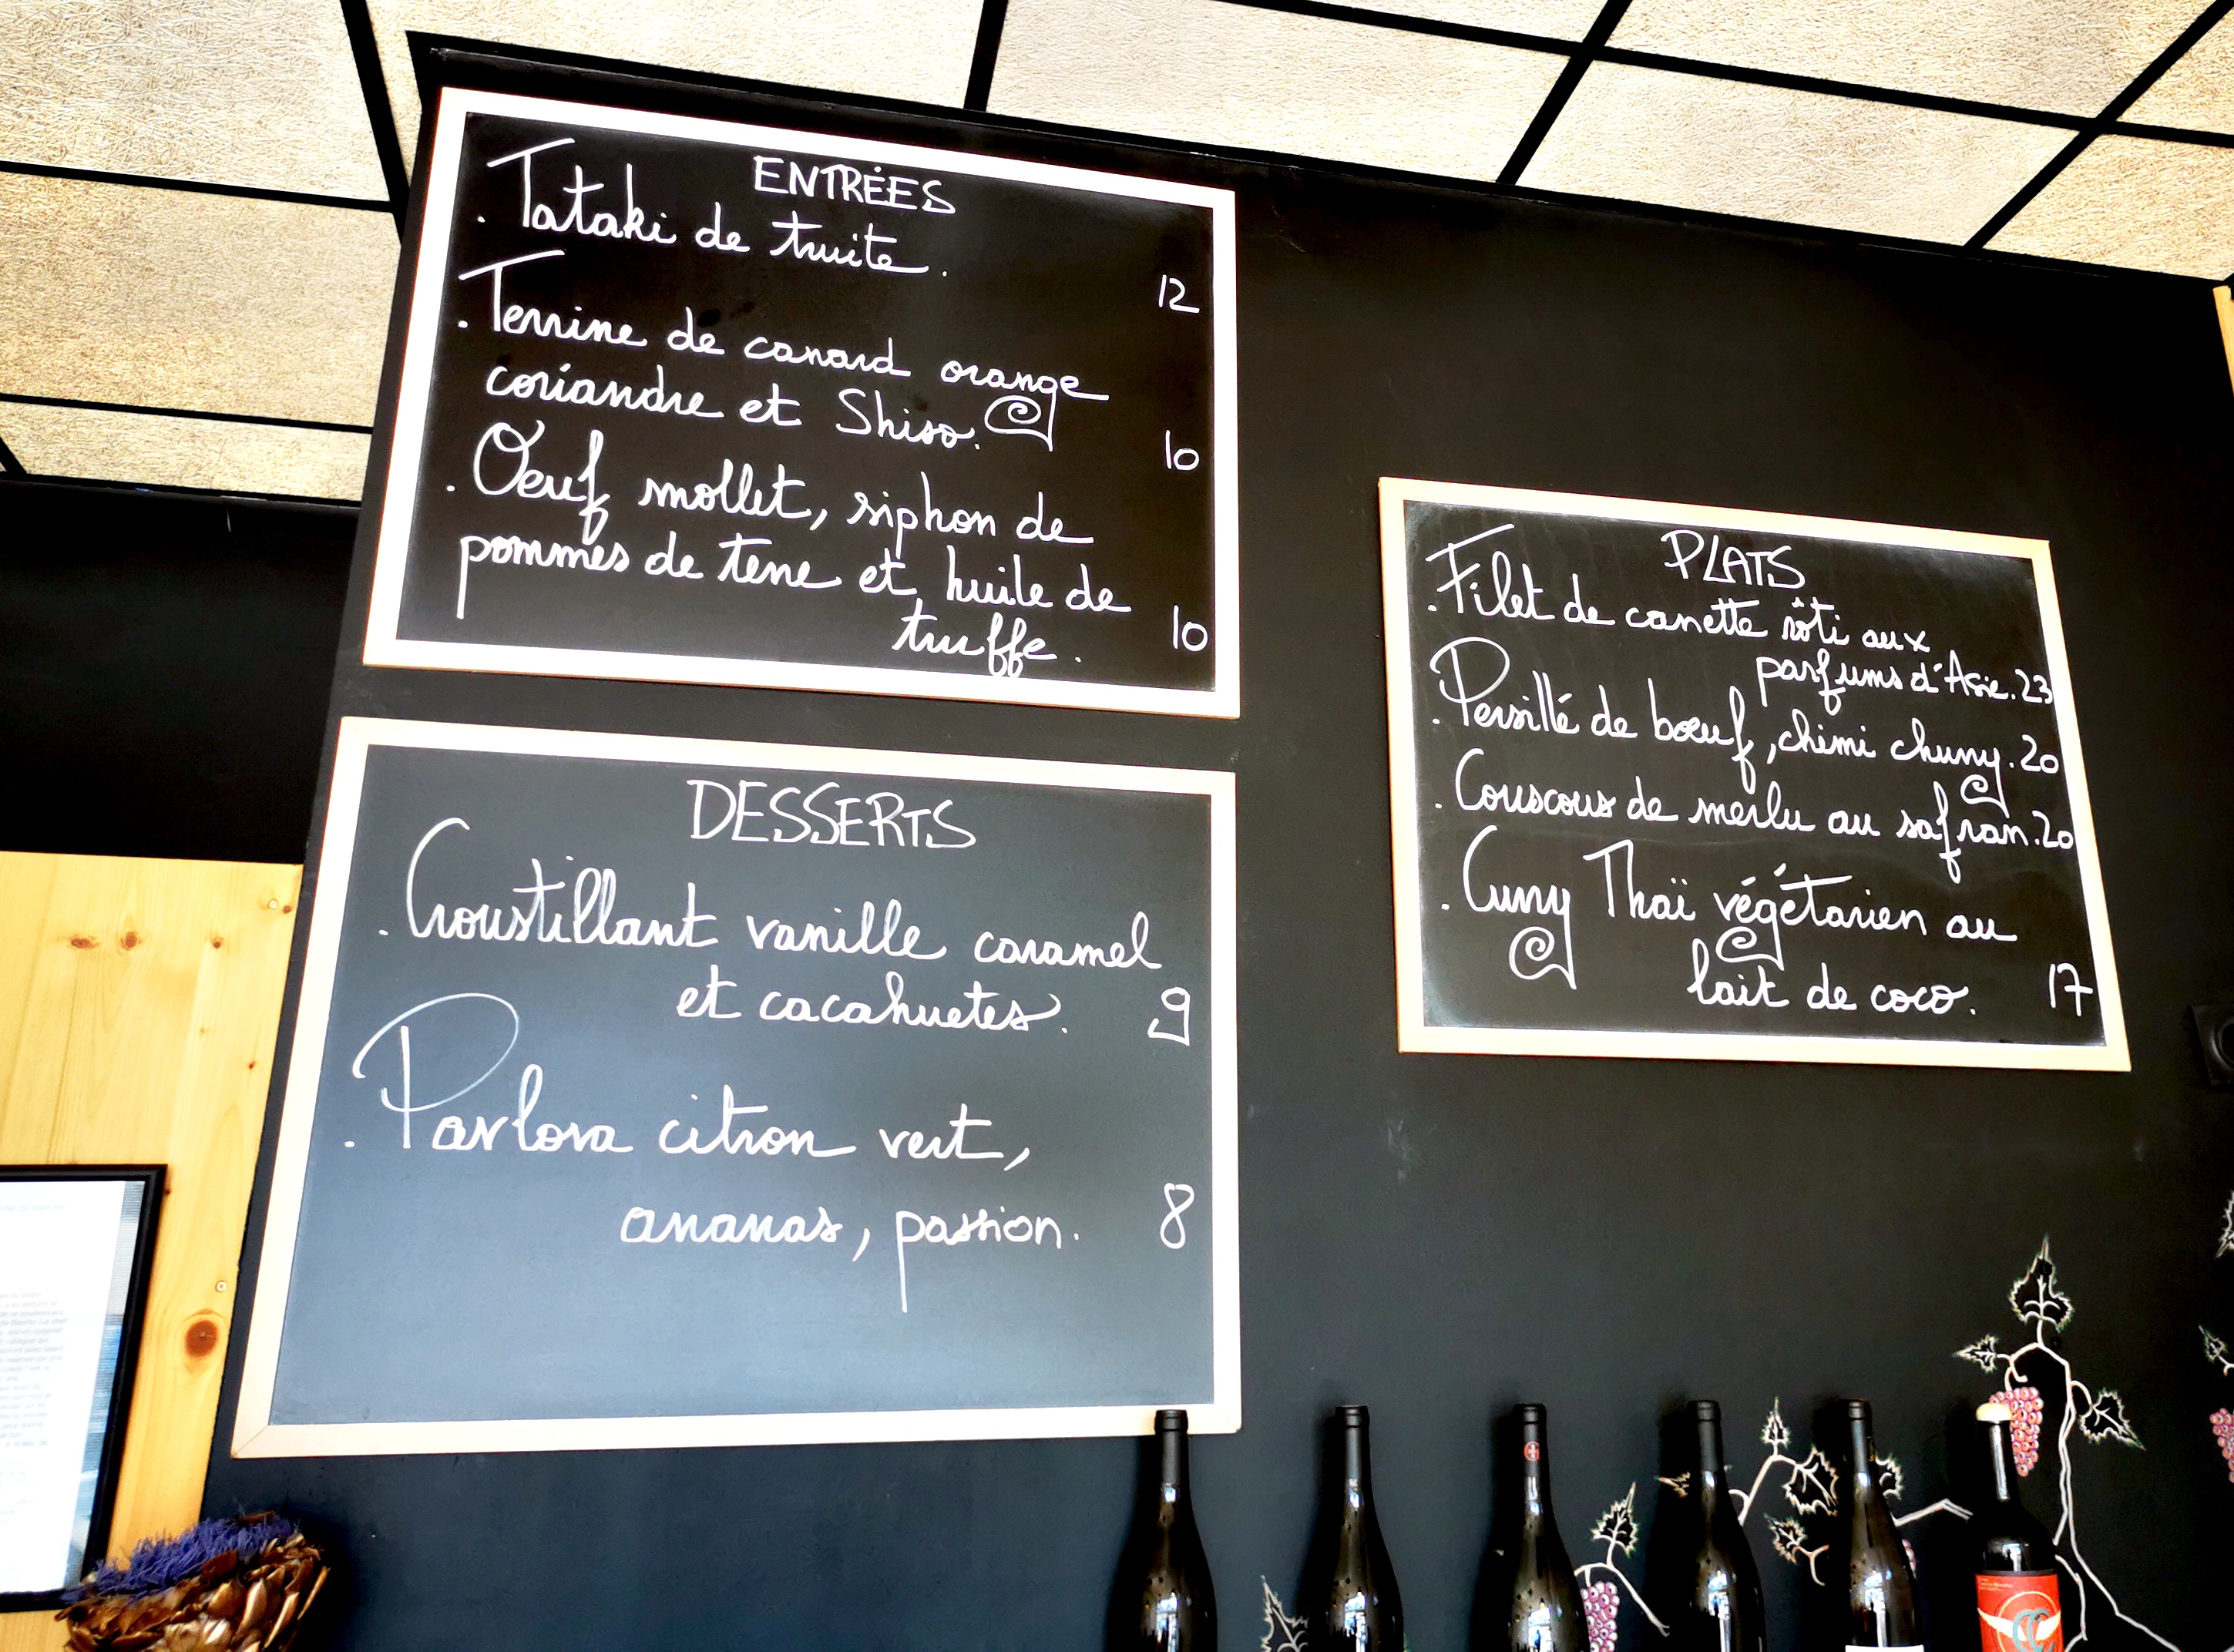 ENTRÉES
. Tataki de truite.
12
. Terrine de canard orange
coriandre et Shiso.
10
. Oeuf mollet, siphon de
pommes de terre et huile de
truffe.
10
PLATS
. Filet de canette rôti aux
parfums d'Asie. 23
. Persillé de bœuf, chimi churry. 20
. Couscous de merlu au safran. 20
. Curry Thaï végétarien au
lait de coco. 17
DESSERTS
. Croustillant vanille caramel
et cacahuetes. 9
. Pavlova citron vert,
ananas, passion. 8